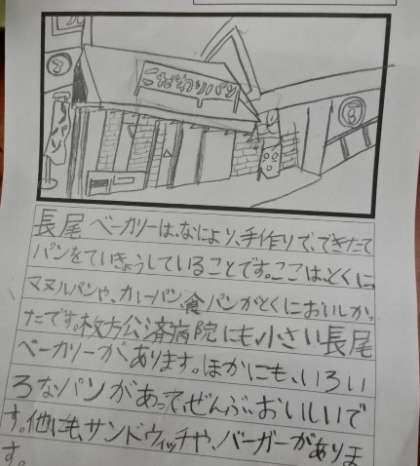 こだわりパン
パン
8
8
長尾ベーカリーは、なにより、手作りで、できたて
パンをていきょうしていることです。ここは、とくに
マヌルパンや、カレーパン、食パンがとくにおいしかっ
たです。枚方公済病院にも、小さい長尾
ベーカリーがあります。ほかにも、いろい
ろなパンがあって、ぜんぶ、おいしいで
す。他にも、サンドウィッチや、バーガーがありま
す。